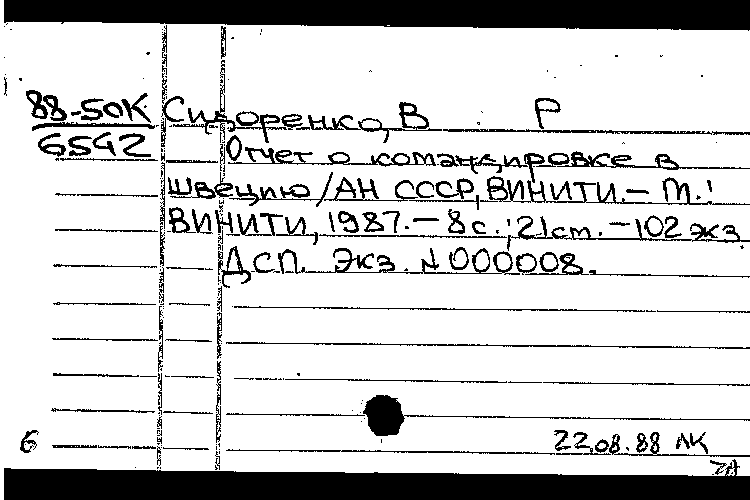 88-50К Сидоренко, В Р
6542 Отчет о командировке в
Швецию / АН СССР, ВИНИТИ. – М.:
ВИНИТИ, 1987. – 8 с.; 21 cm. – 102 экз
ДСП. Экз. N 000008.
6 22.08.88 ЛК